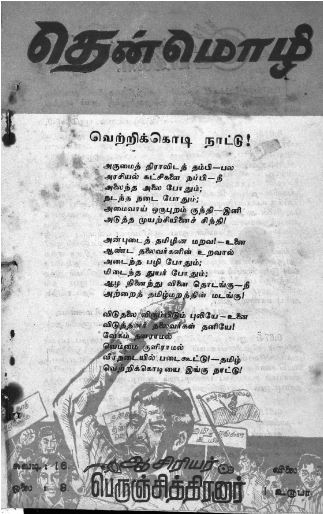 தென்மொழி
வெற்றிக்கொடி நாட்டு!
அருமைத் திராவிடத் தம்பி—பல
அரசியல் கட்சிகளை நம்பி—நீ
அலைந்த அலை போதும்;
நடந்த நடை போதும்;
அமைவாய் ஒருபுறம் குந்தி—இனி
அடுத்த முயற்சியினைச் சிந்தி!
அன்புடைத் தமிழின மறவ!—உனை
ஆண்ட தலைவர்களின் உறவால்
அடைந்த பழி போதும்;
மிடைந்த துயர் போதும்;
ஆழ நினைந்து வினை தொடங்கு—நீ
அற்றைத் தமிழ்மறத்தின் மடங்கு!
விடுதலை விரும்பிடும் புலியே—உனை
விடுத்தனர் தலைவர்கள் தனியே!
வேகம் தளராமல்
வெம்மை குளிராமல்
வீரநடையில் படைகூட்டு!—தமிழ்
வெற்றிக்கொடியை இங்கு நாட்டு!
சுவடி : 16
ஓலை : 9
ஆசிரியர்
பெருஞ்சித்திரனார்
விலை
1 உரூபா